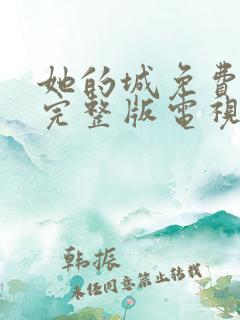 她的城免費
完整版電視
韩振
未经同意禁止转载